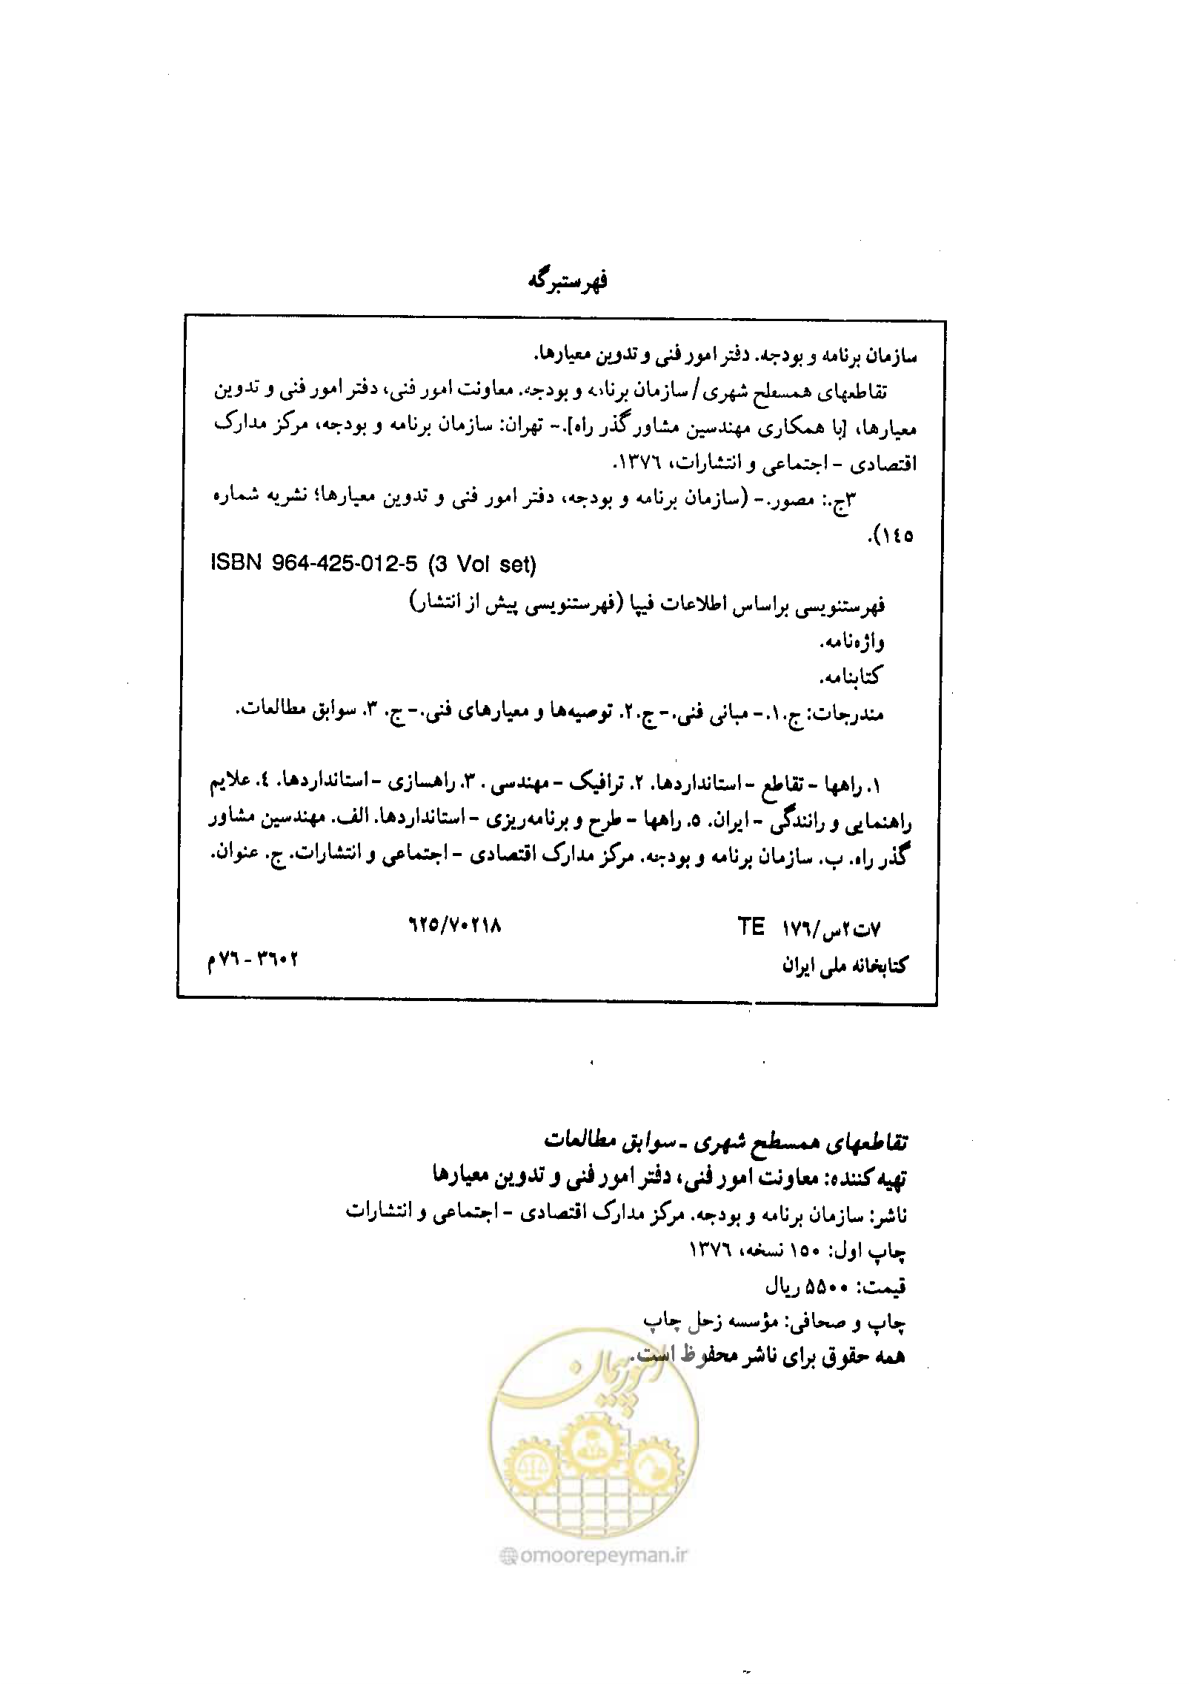 فهرستبرگه
سازمان برنامه و بودجه. دفتر امور فنی و تدوین معیارها.
تقاطعهای همسطح شهری / سازمان برنامه و بودجه. معاونت امور فنی، دفتر امور فنی و تدوین
معیارها، [با همکاری مهندسین مشاور گذر راه].- تهران: سازمان برنامه و بودجه، مرکز مدارک
اقتصادی - اجتماعی و انتشارات، ۱۳۷۶.
۳ج.: مصور.- (سازمان برنامه و بودجه، دفتر امور فنی و تدوین معیارها؛ نشریه شماره
۱۴۵).
ISBN 964-425-012-5 (3 Vol set)
فهرستنویسی براساس اطلاعات فیپا (فهرستنویسی پیش از انتشار)
واژه‌نامه.
کتابنامه.
مندرجات: ج.۱.- مبانی فنی.- ج.۲. توصیه‌ها و معیارهای فنی.- ج. ۳. سوابق مطالعات.
۱. راهها - تقاطع - استانداردها. ۲. ترافیک - مهندسی . ۳. راهسازی - استانداردها. ۴. علایم
راهنمایی و رانندگی - ایران. ۵. راهها - طرح و برنامه‌ریزی - استانداردها. الف. مهندسین مشاور
گذر راه. ب. سازمان برنامه و بودجه. مرکز مدارک اقتصادی - اجتماعی و انتشارات. ج. عنوان.
۷ت۲س/۱۷۶ TE ۶۲۵/۷۰۲۱۸
کتابخانه ملی ایران ۳۶۰۲ - ۷۶م
تقاطعهای همسطح شهری ـ سوابق مطالعات
تهیه کننده: معاونت امور فنی، دفتر امور فنی و تدوین معیارها
ناشر: سازمان برنامه و بودجه. مرکز مدارک اقتصادی - اجتماعی و انتشارات
چاپ اول: ۱۵۰ نسخه، ۱۳۷۶
قیمت: ۵۵۰۰ ریال
چاپ و صحافی: مؤسسه زحل چاپ
همه حقوق برای ناشر محفوظ است.
امور پیمان
@omoorepeyman.ir